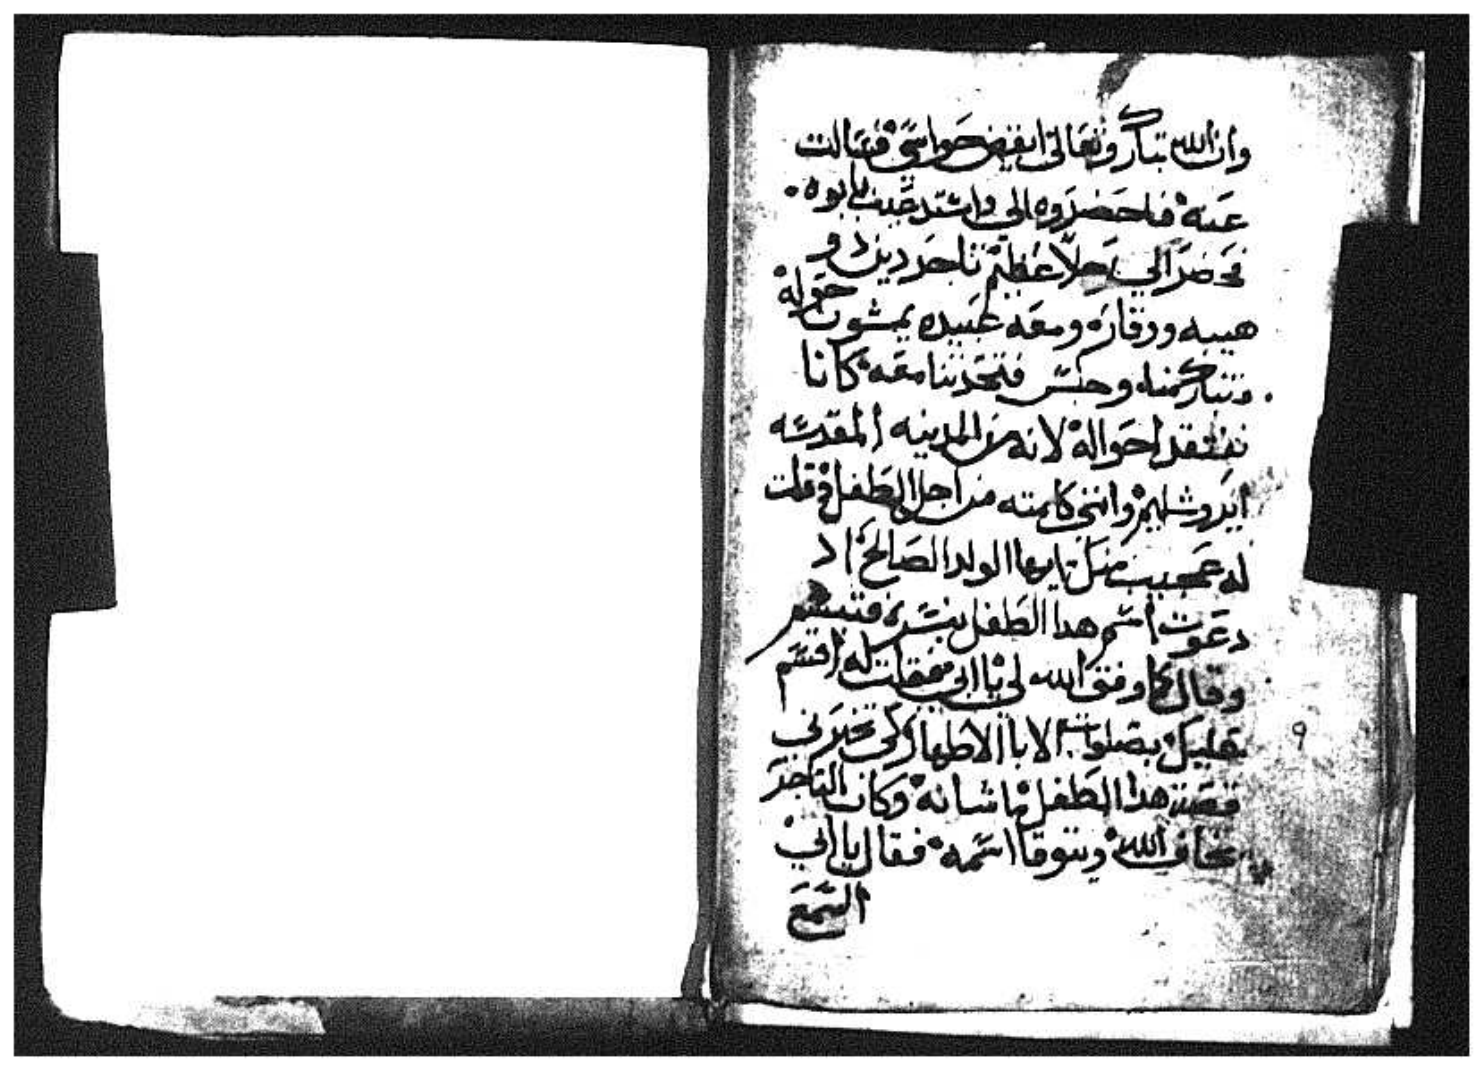 وان الله تبارك وتعالى ايقض حواسي فسالت
عنه فاحضروه الى واشتد عجبت يا بوه
فحضر الي رجلا عظيم تاجر دين دو
هيبه ووقاره ومعه عبيده يمشون حوله
وتبارك منا وجلس فتحدتنا معه كانا
نفتقد احواله لانه من المدينه المقدسه
ايروشليم وانني كلمته من اجل الطفل وقلت
له عجيب منك يا ايها الولد الصالح اد
دعوت اسم هدا الطفل بنسره فتبسم
وقال كما وفق الله لي يا ابي فقلت له اقسم
عليك بصلوات الابا الاطهار كي تخبرني
قصت هدا الطفل ما شانه وكان التاجر
يخاف الله ويتوقا اسمه فقال يا ابي
اسمع
9